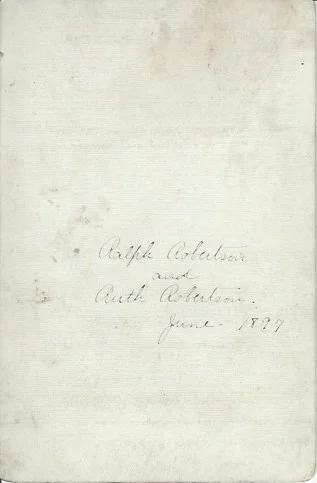 Ralph Robertson
and
Ruth Robertson.
June - 1897